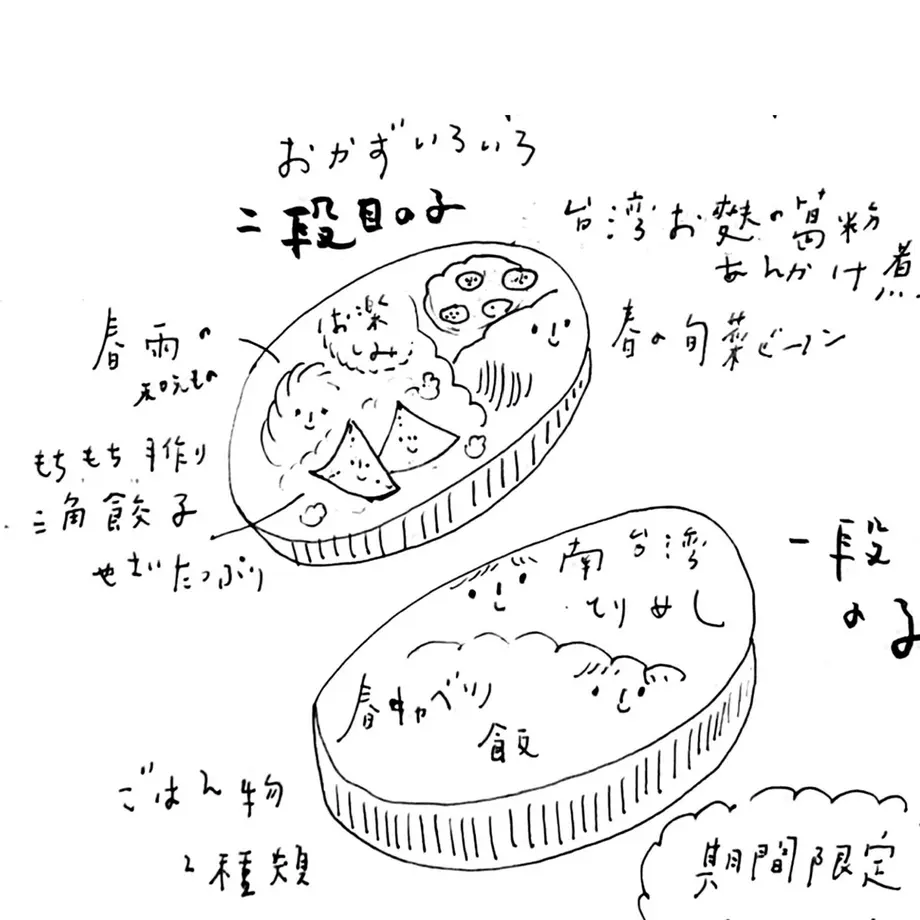 おかずいろいろ
二段目の子
台湾お麩の葛粉
あんかけ煮
春の旬菜ビーフン
春雨の
和えもの
お楽
しみ
もちもち手作り
三角餃子
やさいたっぷり
一段
の子
南台湾
とりめし
春キャベツ
飯
ごはん物
2種類
期間限定